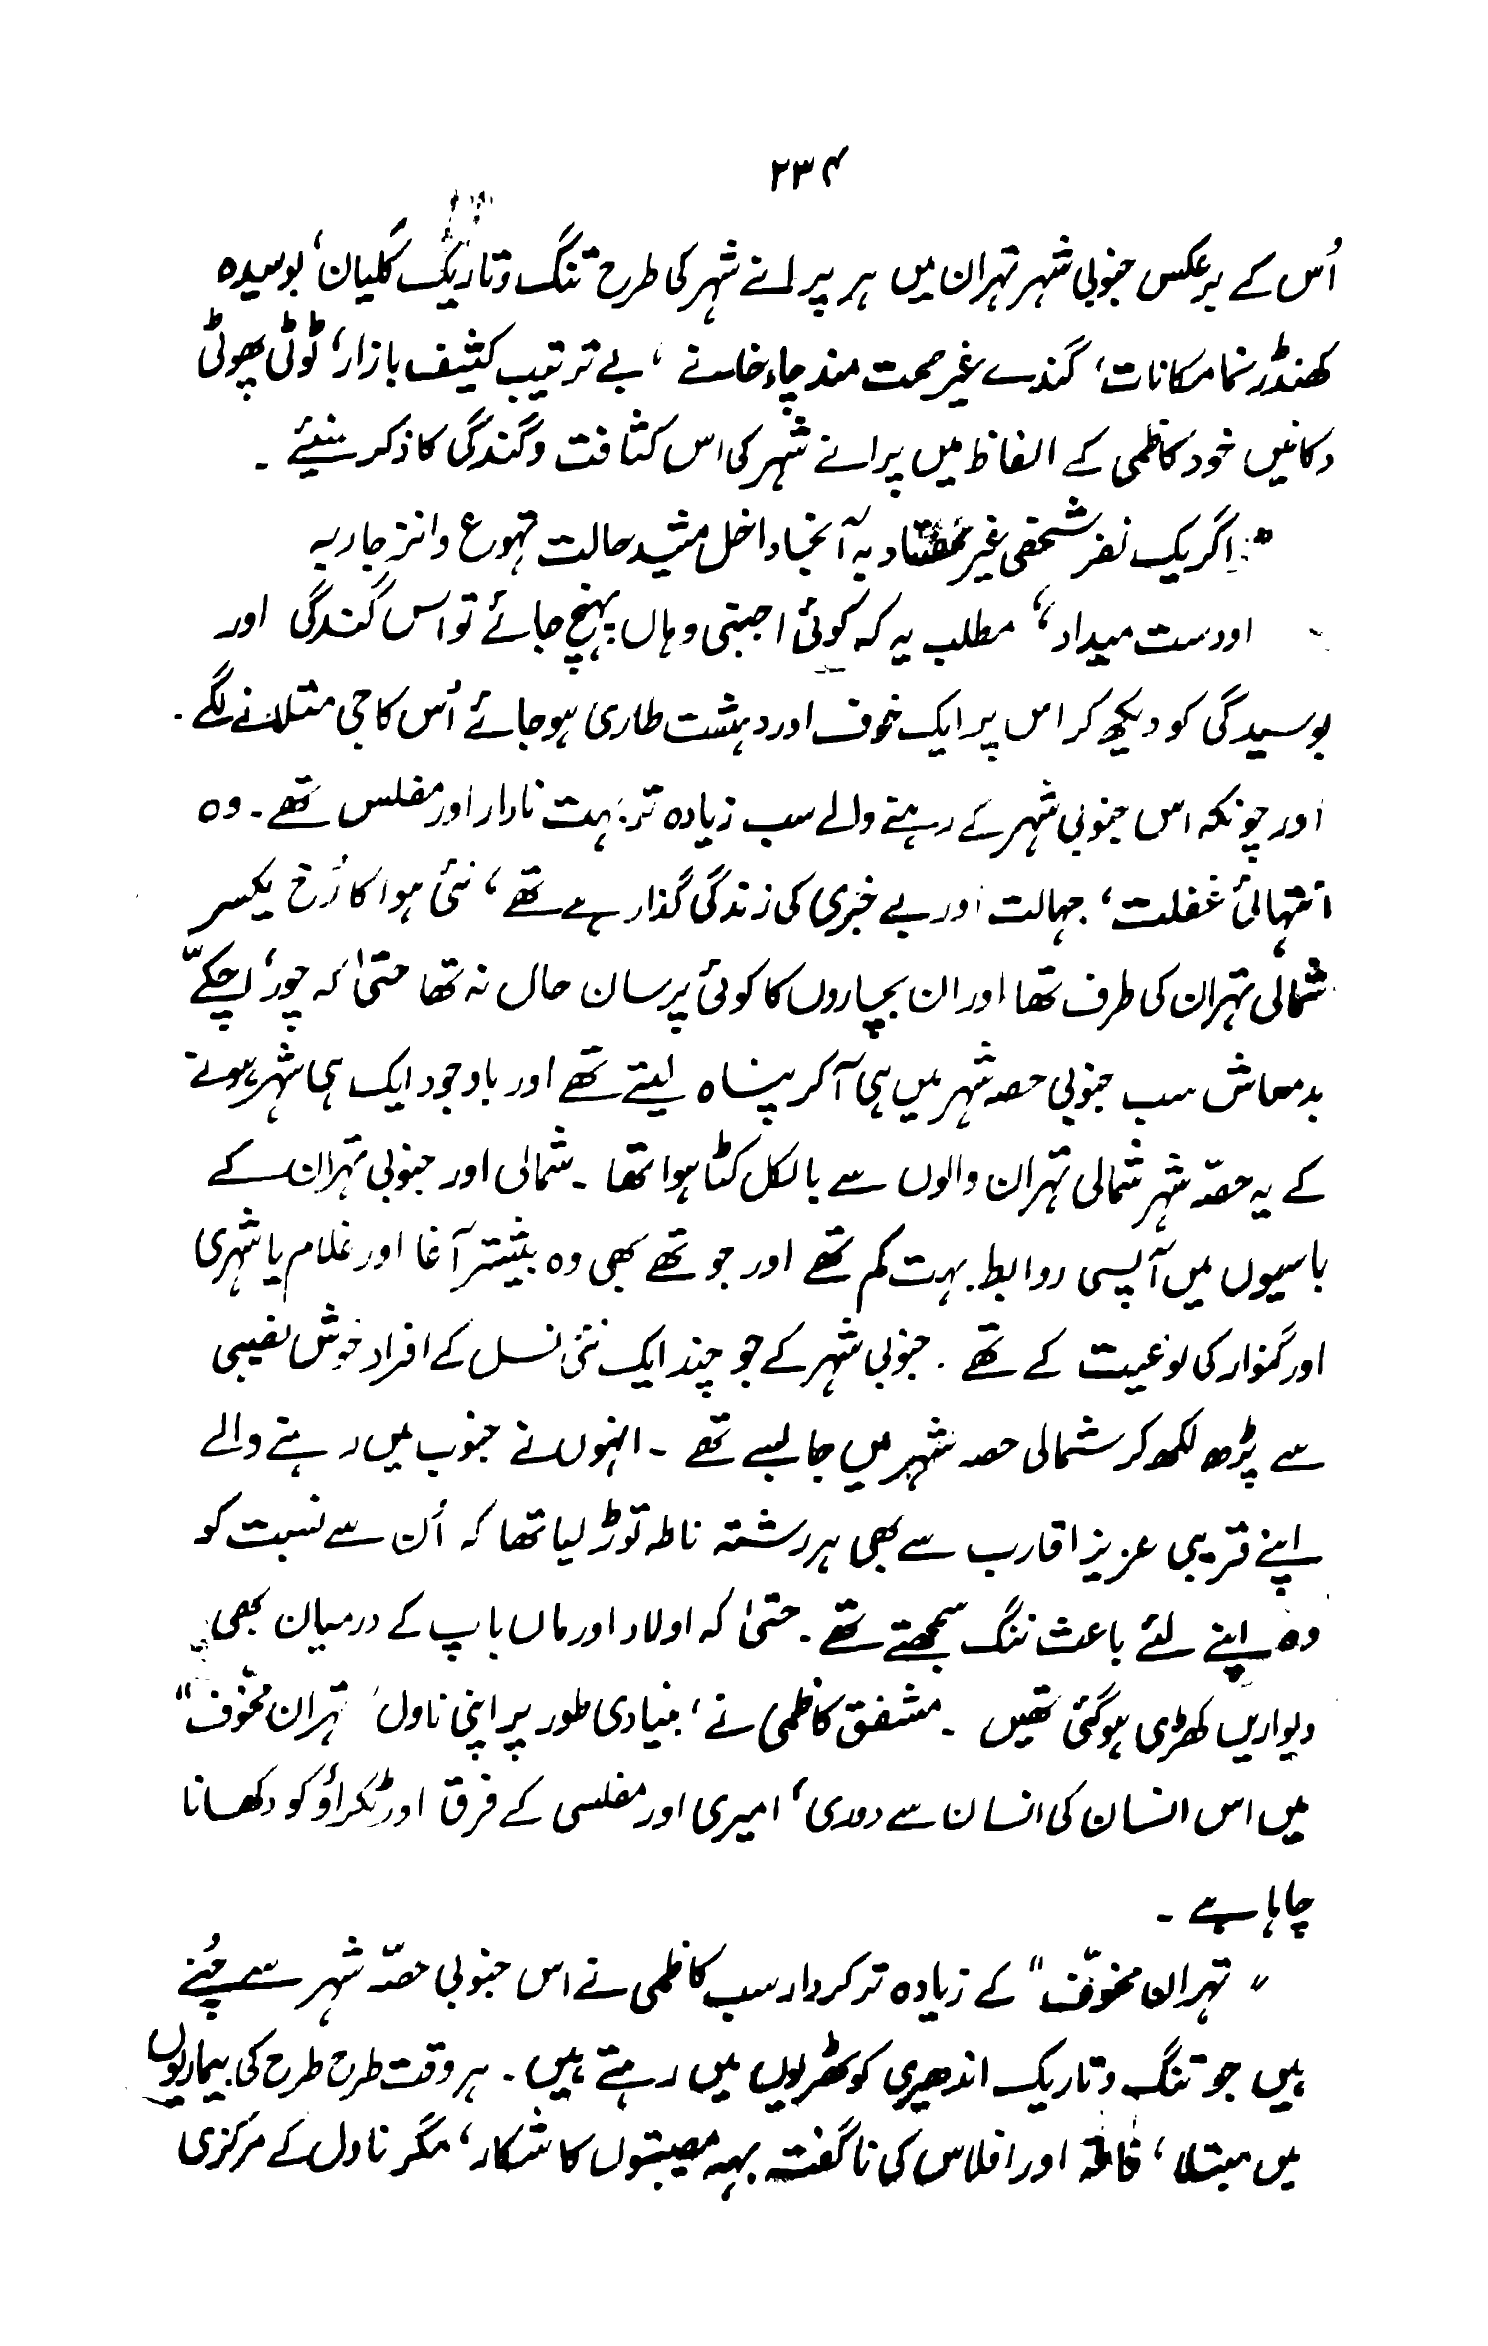 ۲۳۴
اُس کے برعکس جنوبی شہر تہران میں ہر پرانے شہر کی طرح تنگ و تاریک گلیان، بوسیدہ
کھنڈر نما مکانات، گندے غیر صحت مند چاء خانے، بے ترتیب کثیف بازار، ٹوٹی پھوٹی
دکانیں خود کاظمی کے الفاظ میں پرانے شہر کی اس کثافت و گندگی کا ذکر سنیئے ۔
"اگر یک نفر شخصی غیر معتاد بہ آنجا داخل میشد حالت تہوع و انزجار بہ
او دست میداد، مطلب یہ کہ کوئی اجنبی وہاں پہنچ جائے تو اس گندگی اور
بوسیدگی کو دیکھ کر اس پر ایک خوف اور دہشت طاری ہو جائے اُس کا جی متلانے لگے۔
اور چونکہ اس جنوبی شہر کے رہنے والے سب زیادہ تر بہت نادار اور مفلس تھے۔ وہ
انتہائی غفلت، جہالت اور بے خبری کی زندگی گذار رہے تھے، نئی ہوا کا رُخ یکسر
شمالی تہران کی طرف تھا اور ان بچاروں کا کوئی پرسان حال نہ تھا حتیٰ کہ چور، اچکےّ
بدمعاش سب جنوبی حصہ شہر میں ہی آکر پناہ لیتے تھے اور باوجود ایک ہی شہر ہونے
کے یہ حصّہ شہر شمالی تہران والوں سے بالکل کٹا ہوا تھا ۔ شمالی اور جنوبی تہران کے
باسیوں میں آپسی روابط بہت کم تھے اور جو تھے بھی وہ بیشتر آغا اور غلام یا شہری
اور گنوار کی نوعیت کے تھے ۔ جنوبی شہر کے جو چند ایک نئی نسل کے افراد خوش نصیبی
سے پڑھ لکھ کر شمالی حصہ شہر میں جا بسے تھے ۔ انہوں نے جنوب میں رہنے والے
اپنے قریبی عزیز اقارب سے بھی ہر رشتہ ناطہ توڑ لیا تھا کہ اُن سے نسبت کو
وہ اپنے لئے باعث ننگ سمجھتے تھے۔ حتیٰ کہ اولاد اور ماں باپ کے درمیان بھی
دیواریں کھڑی ہوگئی تھیں ۔ مشفق کاظمی نے، بنیادی طور پر اپنی ناول، تہران مخوّف"
میں اس انسان کی انسان سے دوری، امیری اور مفلسی کے فرق اور ٹکراؤ کو دکھانا
چاہا ہے ۔
"تہران مخوّف" کے زیادہ تر کردار سب کاظمی نے اس جنوبی حصّہ شہر سے چُنے
ہیں جو تنگ و تاریک اندھیری کوٹھریوں میں رہتے ہیں۔ ہر وقت طرح طرح کی بیماریوں
میں مبتلا، فاقہ اور افلاس کی ناگفتہ بہہ مصیبتوں کا شکار، مگر ناول کے مرکزی